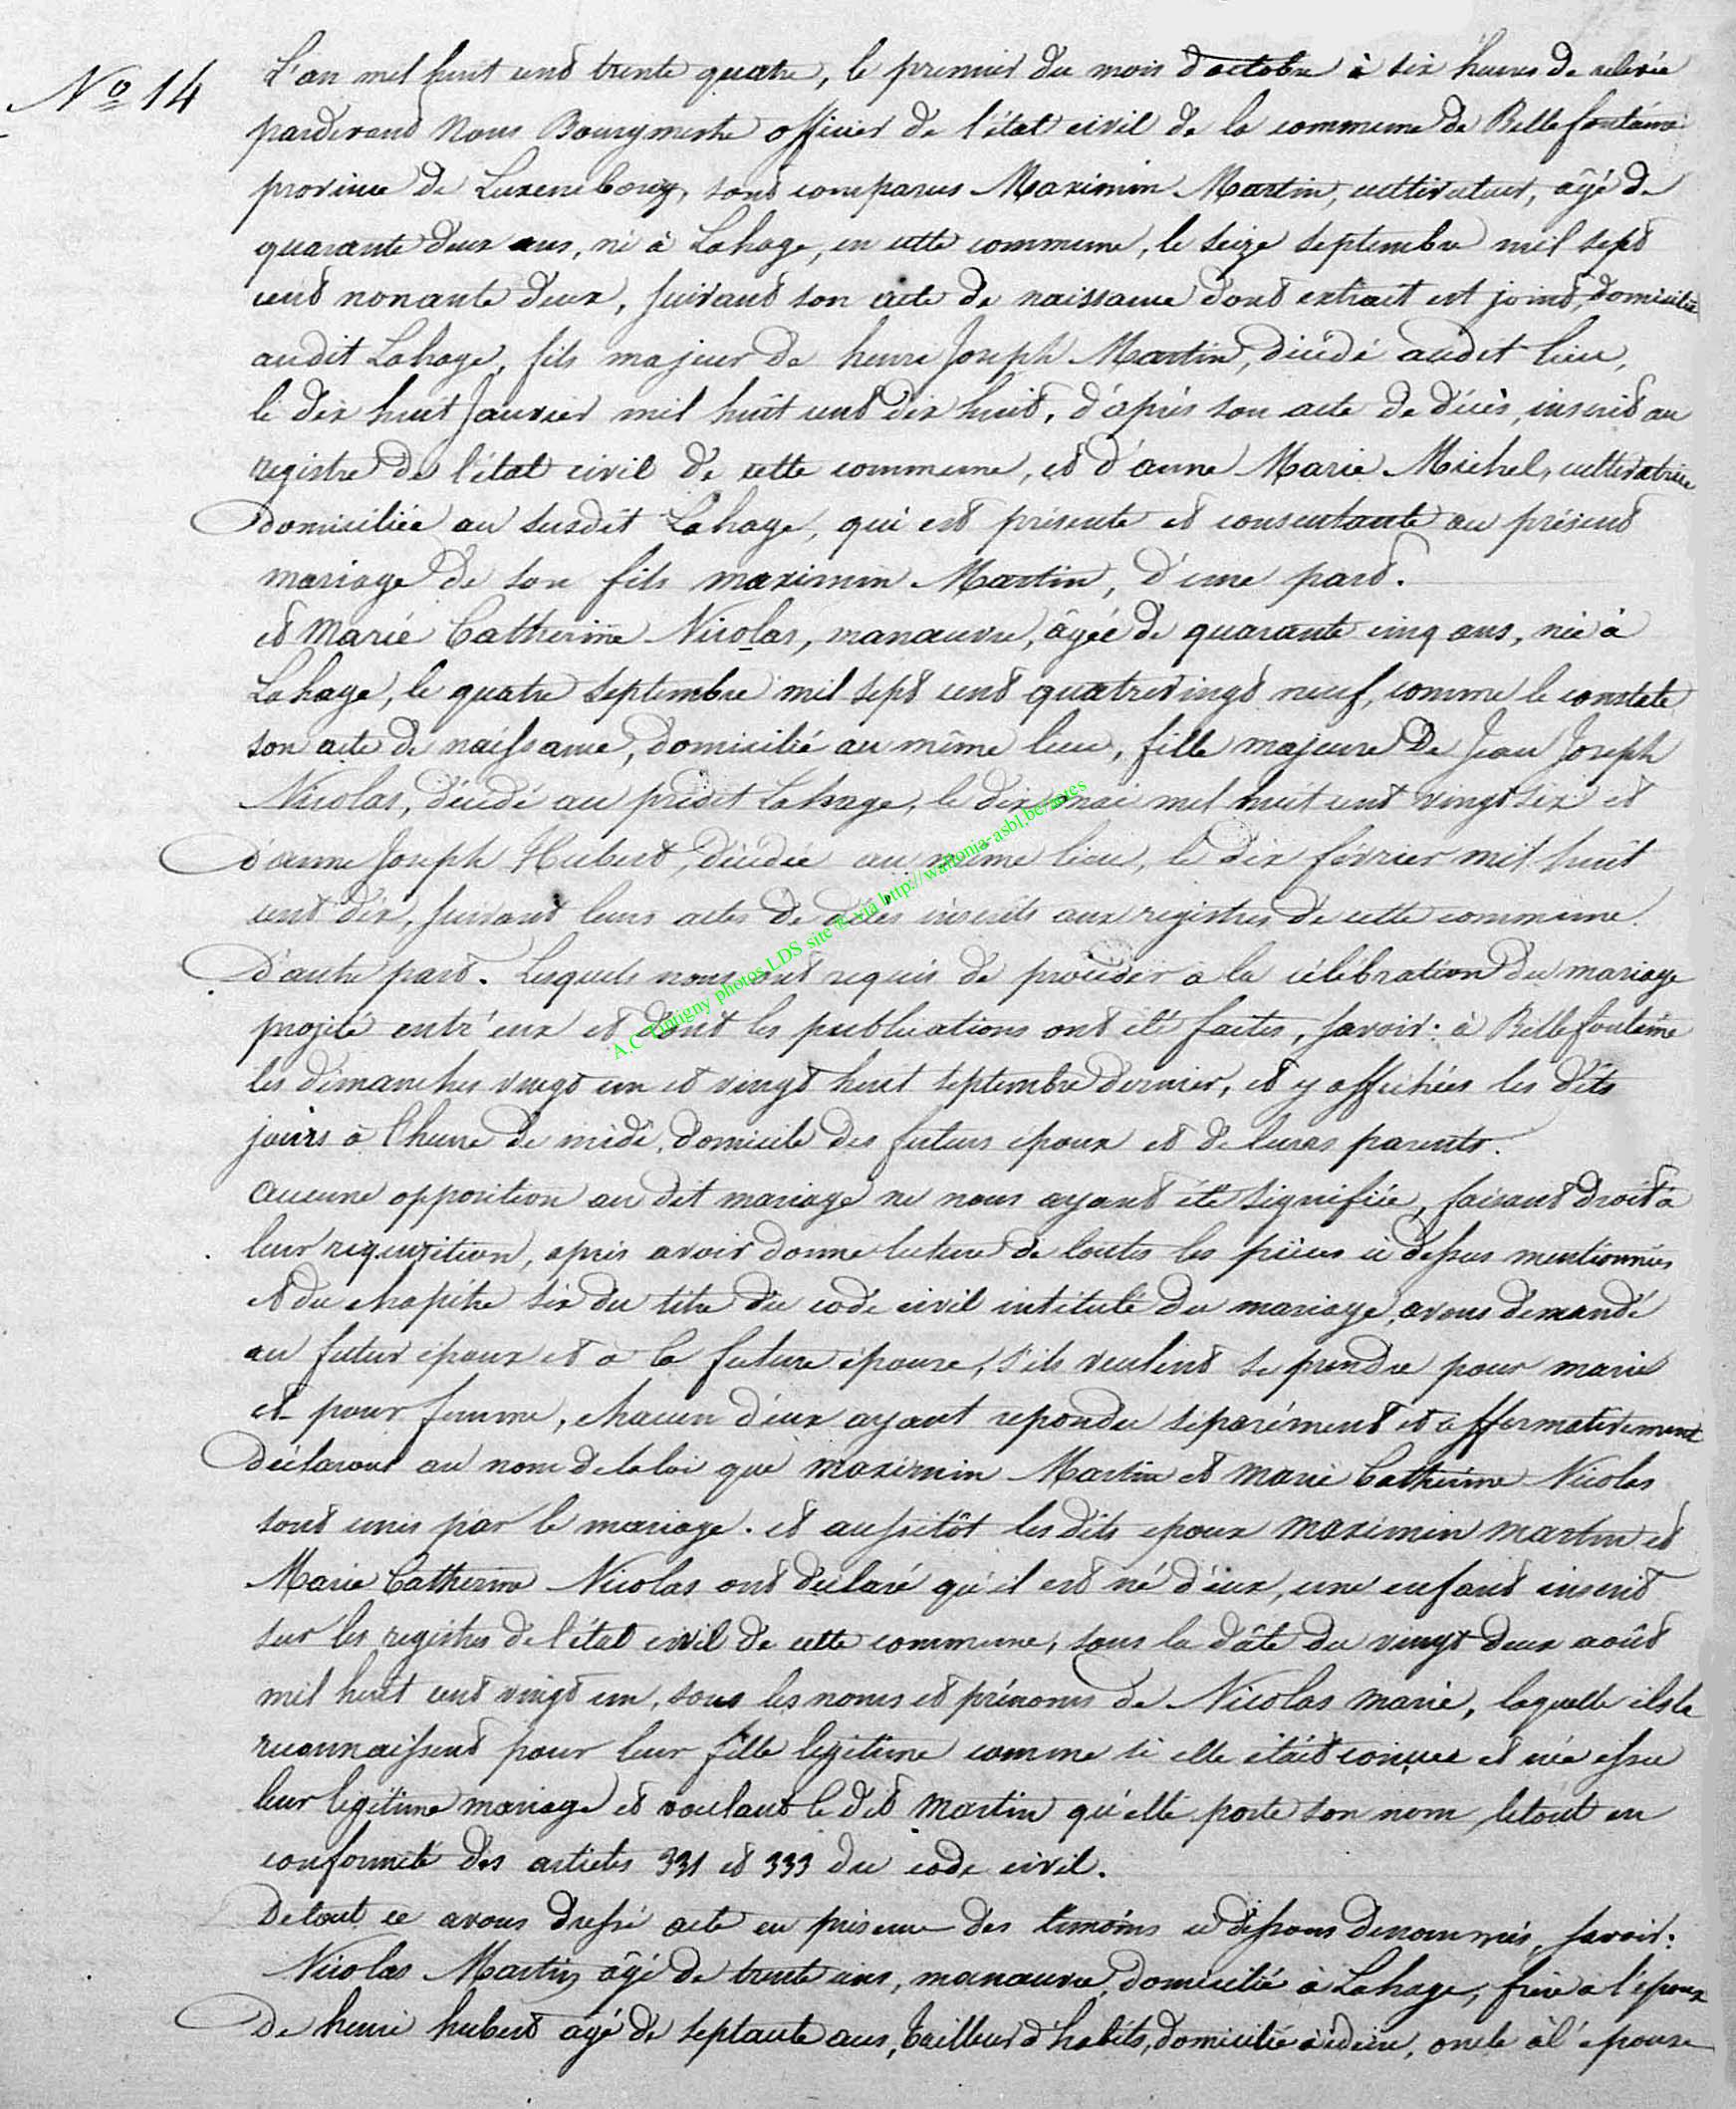 No 14
L'an mil huit cent trente quatre, le premier du mois d'octobre à six heures de relevée
pardevant Nous Bourgmestre officier de l'état civil de la commune de Bellefontaine
province de Luxembourg, sont comparus Maximin Martin, cultivateur, âgé de
quarante deux ans, né à Lahage, en cette commune, le seize septembre mil sept
cent nonante deux, suivant son acte de naissance dont extrait est joint, domicilié
audit Lahage, fils majeur de henri Joseph Martin, décédé audit lieu,
le dix huit Janvier mil huit cent dix huit, d'après son acte de décès, inscrit au
registre de l'état civil de cette commune, et d'anne Marie Michel, cultivatrice
domiciliée au susdit Lahage, qui est présente et consentante au présent
mariage de son fils maximin Martin, d'une part.
et Marie Catherine Nicolas, manœuvre, âgée de quarante cinq ans, née à
Lahage, le quatre septembre mil sept cent quatrevingt neuf, comme le constate
son acte de naissance, domicilié au même lieu, fille majeure De Jean Joseph
Nicolas, décédé au prédit Lahage, le dix mai mil huit cent vingt six et
d'anne Joseph Hubert, décédée au même lieu, le dix février mil huit
cent dix, suivant leurs actes de décès inscrits aux registres de cette commune.
D'autre part. Lesquels nous ont requis de procéder a la célébration du mariage
projeté entr'eux et dont les publications ont été faites, savoir: à Bellefontaine
les dimanches vingt un et vingt huit septembre dernier, et y affichées les dits
jours à l'heure de midi, domicile des futurs époux et de leurs parents.
aucune opposition au dit mariage ne nous ayant été signifiée, faisant droit à
leur requisition, après avoir donné lecture de toutes les pièces ci dessus mentionnées
et du chapitre six du titre du code civil intitulé du mariage, avons demandé
au futur époux et a la future épouse, s'ils veulent se prendre pour marie
et pour femme, chacun d'eux ayant repondu séparément et affirmativement
déclarons au nom de la loi que maximin Martin et Marie Catherine Nicolas
sont unis par le mariage. et aussitôt les dits epoux maximin martin et
Marie Catherine Nicolas ont déclaré qu'il est né d'eux, une enfant inscrit
sur les registres de l'état civil de cette commune, sous la dâte du vingt deux août
mil huit cent vingt un, sous les noms et prénoms de Nicolas Marie, laquelle ils la
reconnaissent pour leur fille legitime comme si elle était conçue et née
leur legitime mariage et voulant le dit Martin qu'elle porte son nom, le tout en
conformité des articles 331 et 333 du code civil.
De tout ce avons dressé acte en présence des témoins ci dessous denommés, savoir:
Nicolas Martin âgé de trente ans, manœuvre, domicilié à Lahage, frère à l'époux
De henri hubert agé de septante ans, tailleur d'habits, domicilié, oncle à l'épouse
A.C Tintigny photos LDS site & via http://wallonia-asbl.be/actes